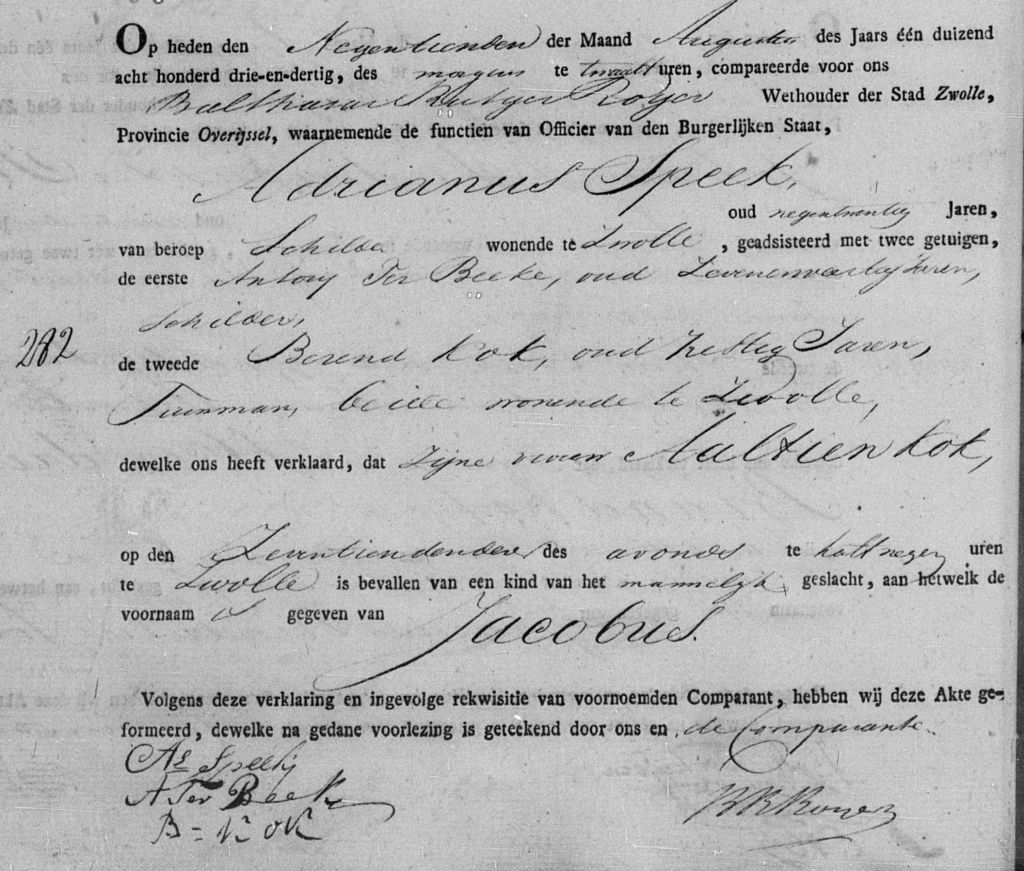 Op heden den Negentienden der Maand Augustus des Jaars één duizend
acht honderd drie-en-dertig, des morgens te twaalf uren, compareerde voor ons
Balthazar Rutger Wethouder der Stad Zwolle,
Provincie Overijssel, waarnemende de functien van Officier van den Burgerlijken Staat,
Adrianus Speek,
oud negentwintig Jaren,
van beroep Schilder wonende te Zwolle, geadsisteerd met twee getuigen,
de eerste Antony Ter Beeke, oud Zevenenveertig Jaren,
Schilder,
282
de tweede Berend Kok, oud Zestig Jaren,
Tuinman, beide wonende te Zwolle,
dewelke ons heeft verklaard, dat zijne vrouw Aaltien Kok,
op den Zeventiendendezer des avonds te half negen uren
te Zwolle is bevallen van een kind van het mannelijk geslacht, aan hetwelk de
voornaam is gegeven van Jacobus.
Volgens deze verklaring en ingevolge rekwisitie van voornoemden Comparant, hebben wij deze Akte ge-
formeerd, dewelke na gedane voorlezing is geteekend door ons en de Comparante.
As Speek
A Ter Beek
B = Kok